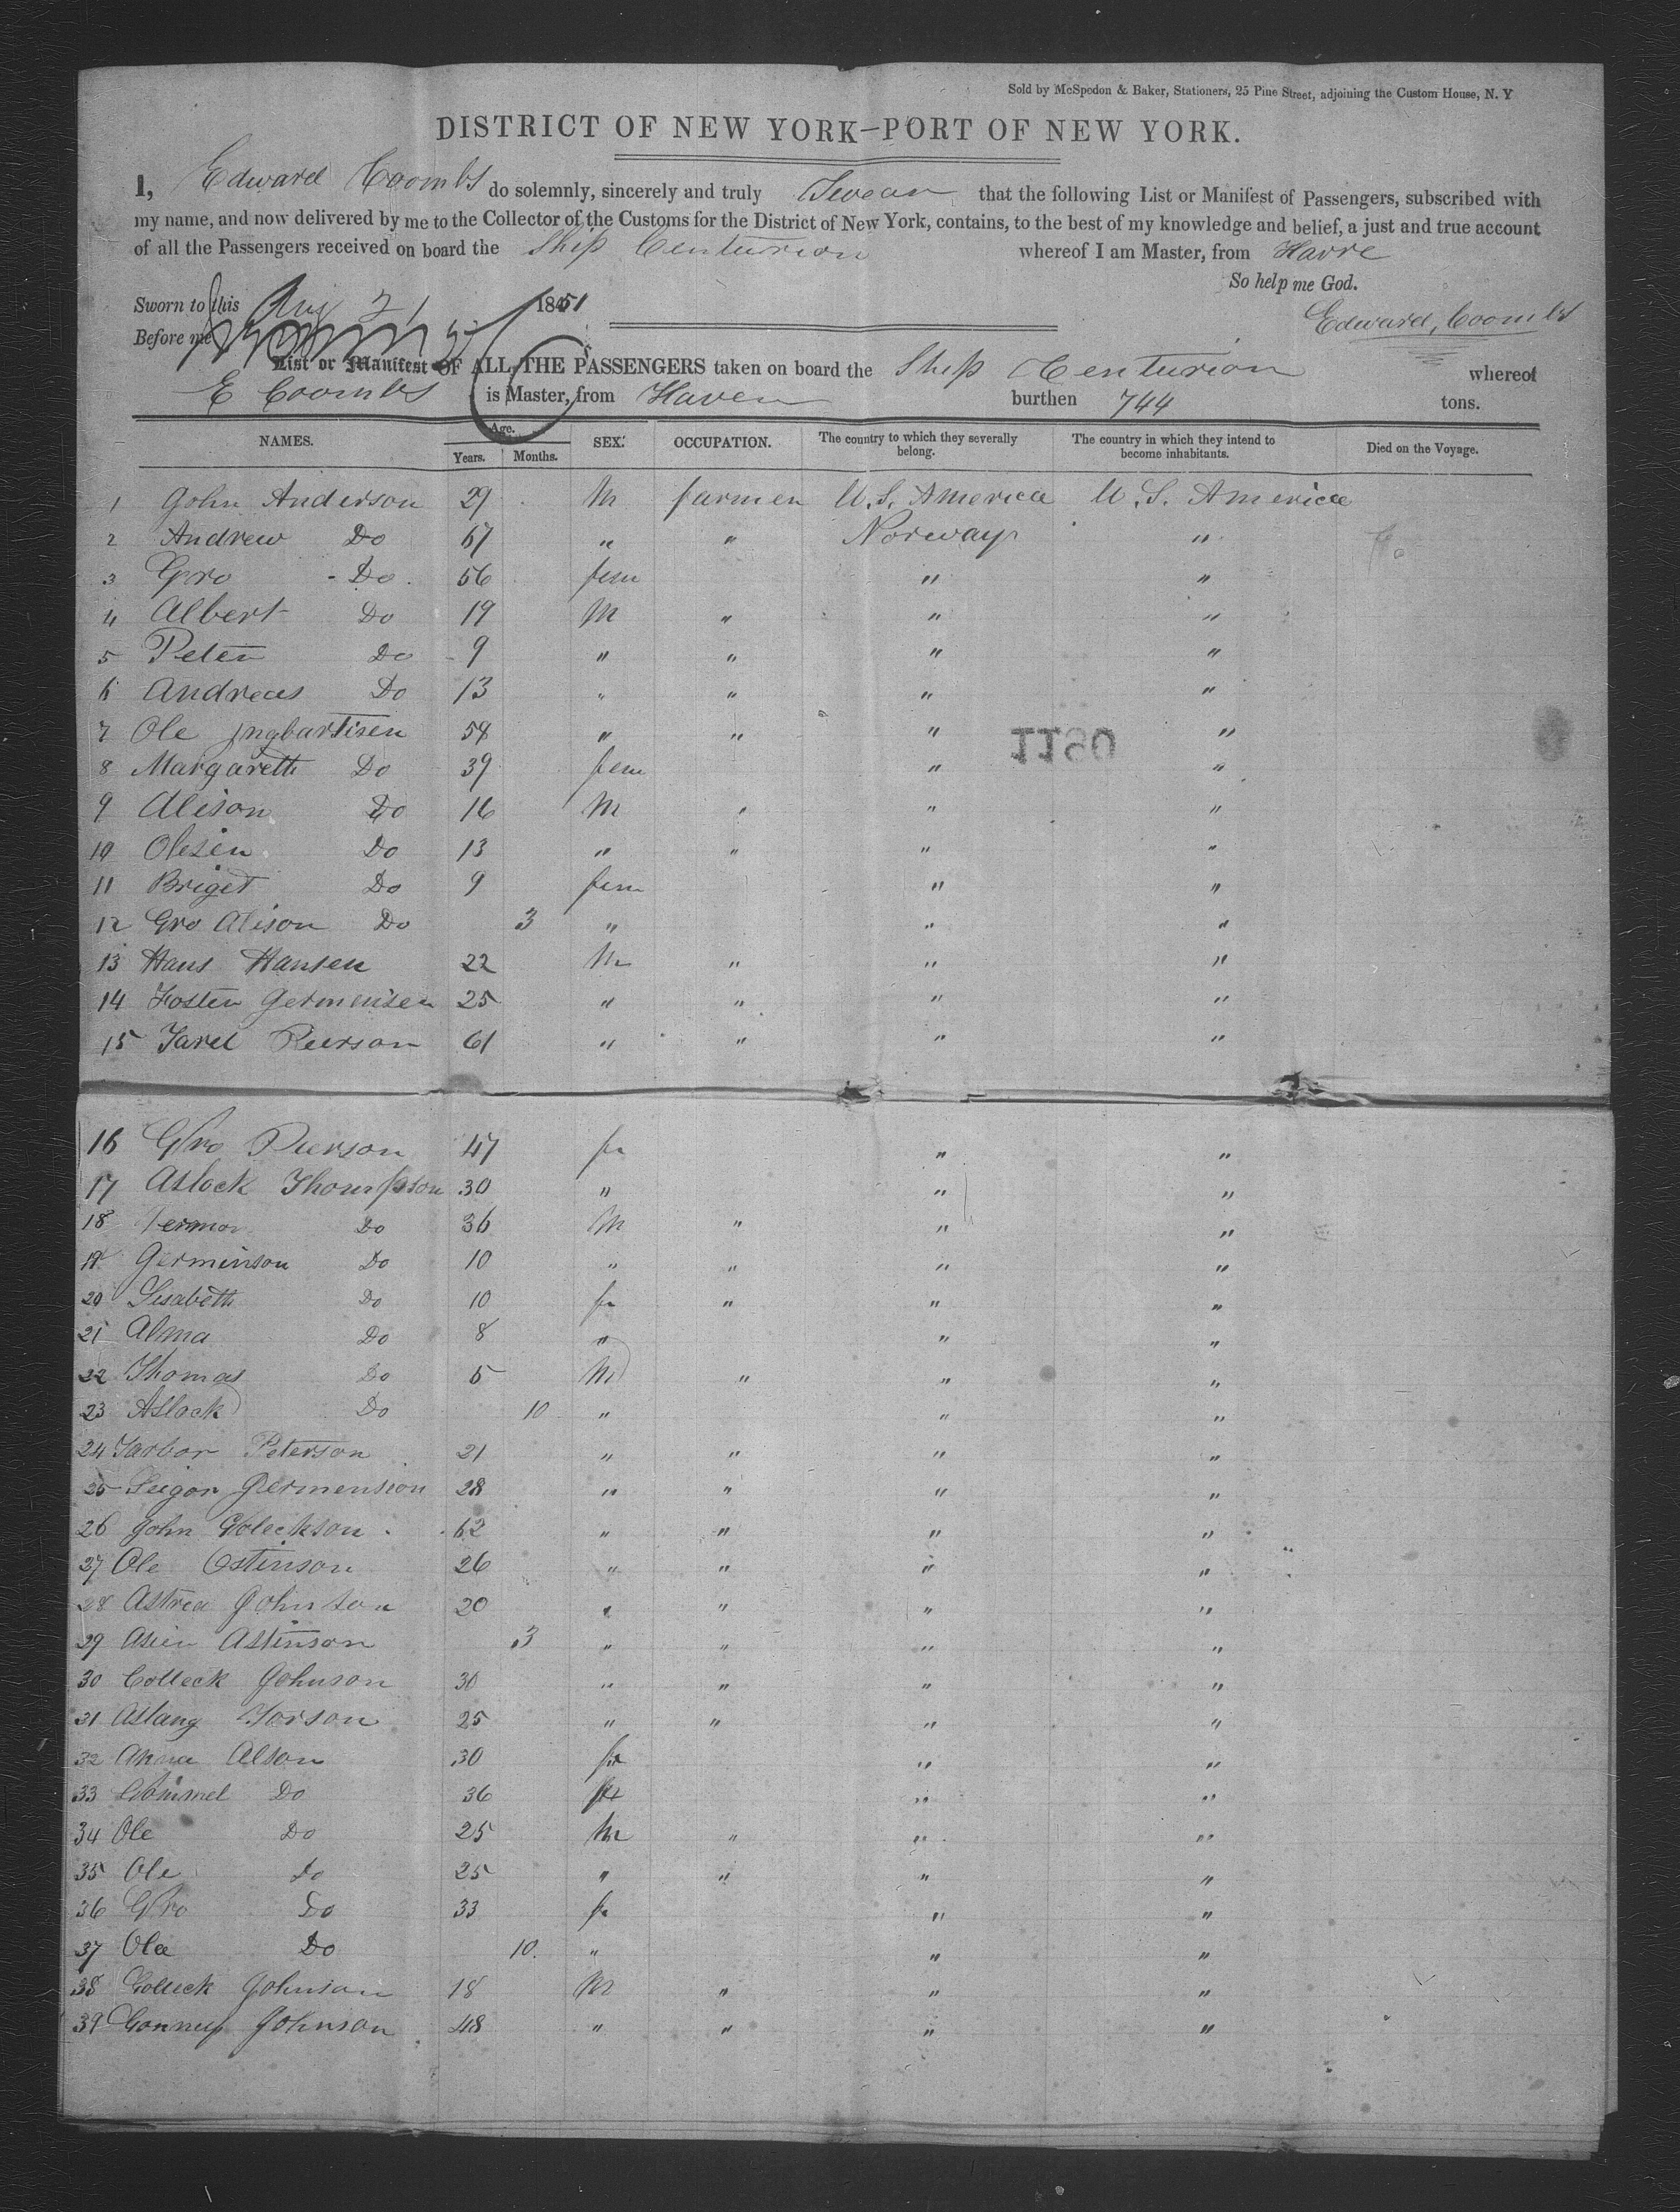 Sold by McSpedon & Baker, Stationers, 25 Pine Street, adjoining the Custom House, N. Y
DISTRICT OF NEW YORK—PORT OF NEW YORK.
I, Edward Coombs do solemnly, sincerely and truly Swear that the following List or Manifest of Passengers, subscribed with
my name, and now delivered by me to the Collector of the Customs for the District of New York, contains, to the best of my knowledge and belief, a just and true account
of all the Passengers received on board the Ship Centurion whereof I am Master, from Havre
So help me God.
Sworn to this Aug 21 1851
Edward, Coombs
Before me
List or Manifest OF ALL THE PASSENGERS taken on board the Ship Centurion whereof
E Coombs is Master, from Haven burthen 744 tons.
NAMES. Age. Years. Months. SEX. OCCUPATION. The country to which they severally belong. The country in which they intend to become inhabitants. Died on the Voyage.
1 John Anderson 29 M farmer U.S. America U.S. America
2 Andrew Do 67 " " Norway "
3 Gro Do 56 fem " "
4 Albert Do 19 M " " "
5 Peter Do 9 " " " "
6 Andreas Do 13 " " " "
7 Ole Ingbartisen 58 " " " "
1190
8 Margareth Do 39 fem " "
9 Alison Do 16 M " " "
10 Olesen Do 13 " " " "
11 Briget Do 9 fem " "
12 Gro Alison Do 3 " " "
13 Hans Hansen 22 M " " "
14 Hosten Germensen 25 " " " "
15 Tarel Peerson 61 " " " "
16 Gro Peerson 47 fe " "
17 Aslock Thompson 30 " " "
18 Do 36 M " " "
19 Germinson Do 10 " " " "
20 Lisabeth Do 10 fe " " "
21 Alma Do 8 " " "
22 Thomas Do 5 M " " "
23 Aslock Do 10 " " "
24 Tarbor Peterson 21 " " " "
25 Seigon Germension 28 " " " "
26 John Goleckson 62 " " " "
27 Ole Ostinson 26 " " " "
28 Astrea Johnson 20 " " " "
29 Asien Astinson 3 " " " "
30 Colleck Johnson 30 " " " "
31 Aslang Torson 25 " " " "
32 Anna Alson 30 fe " "
33 Do 36 fe " "
34 Ole Do 25 M " " "
35 Ole Do 25 " " " "
36 Gro Do 33 fe " "
37 Olea Do 10 " " "
38 Golleck Johnson 18 M " " "
39 Gonney Johnson 48 " " " "